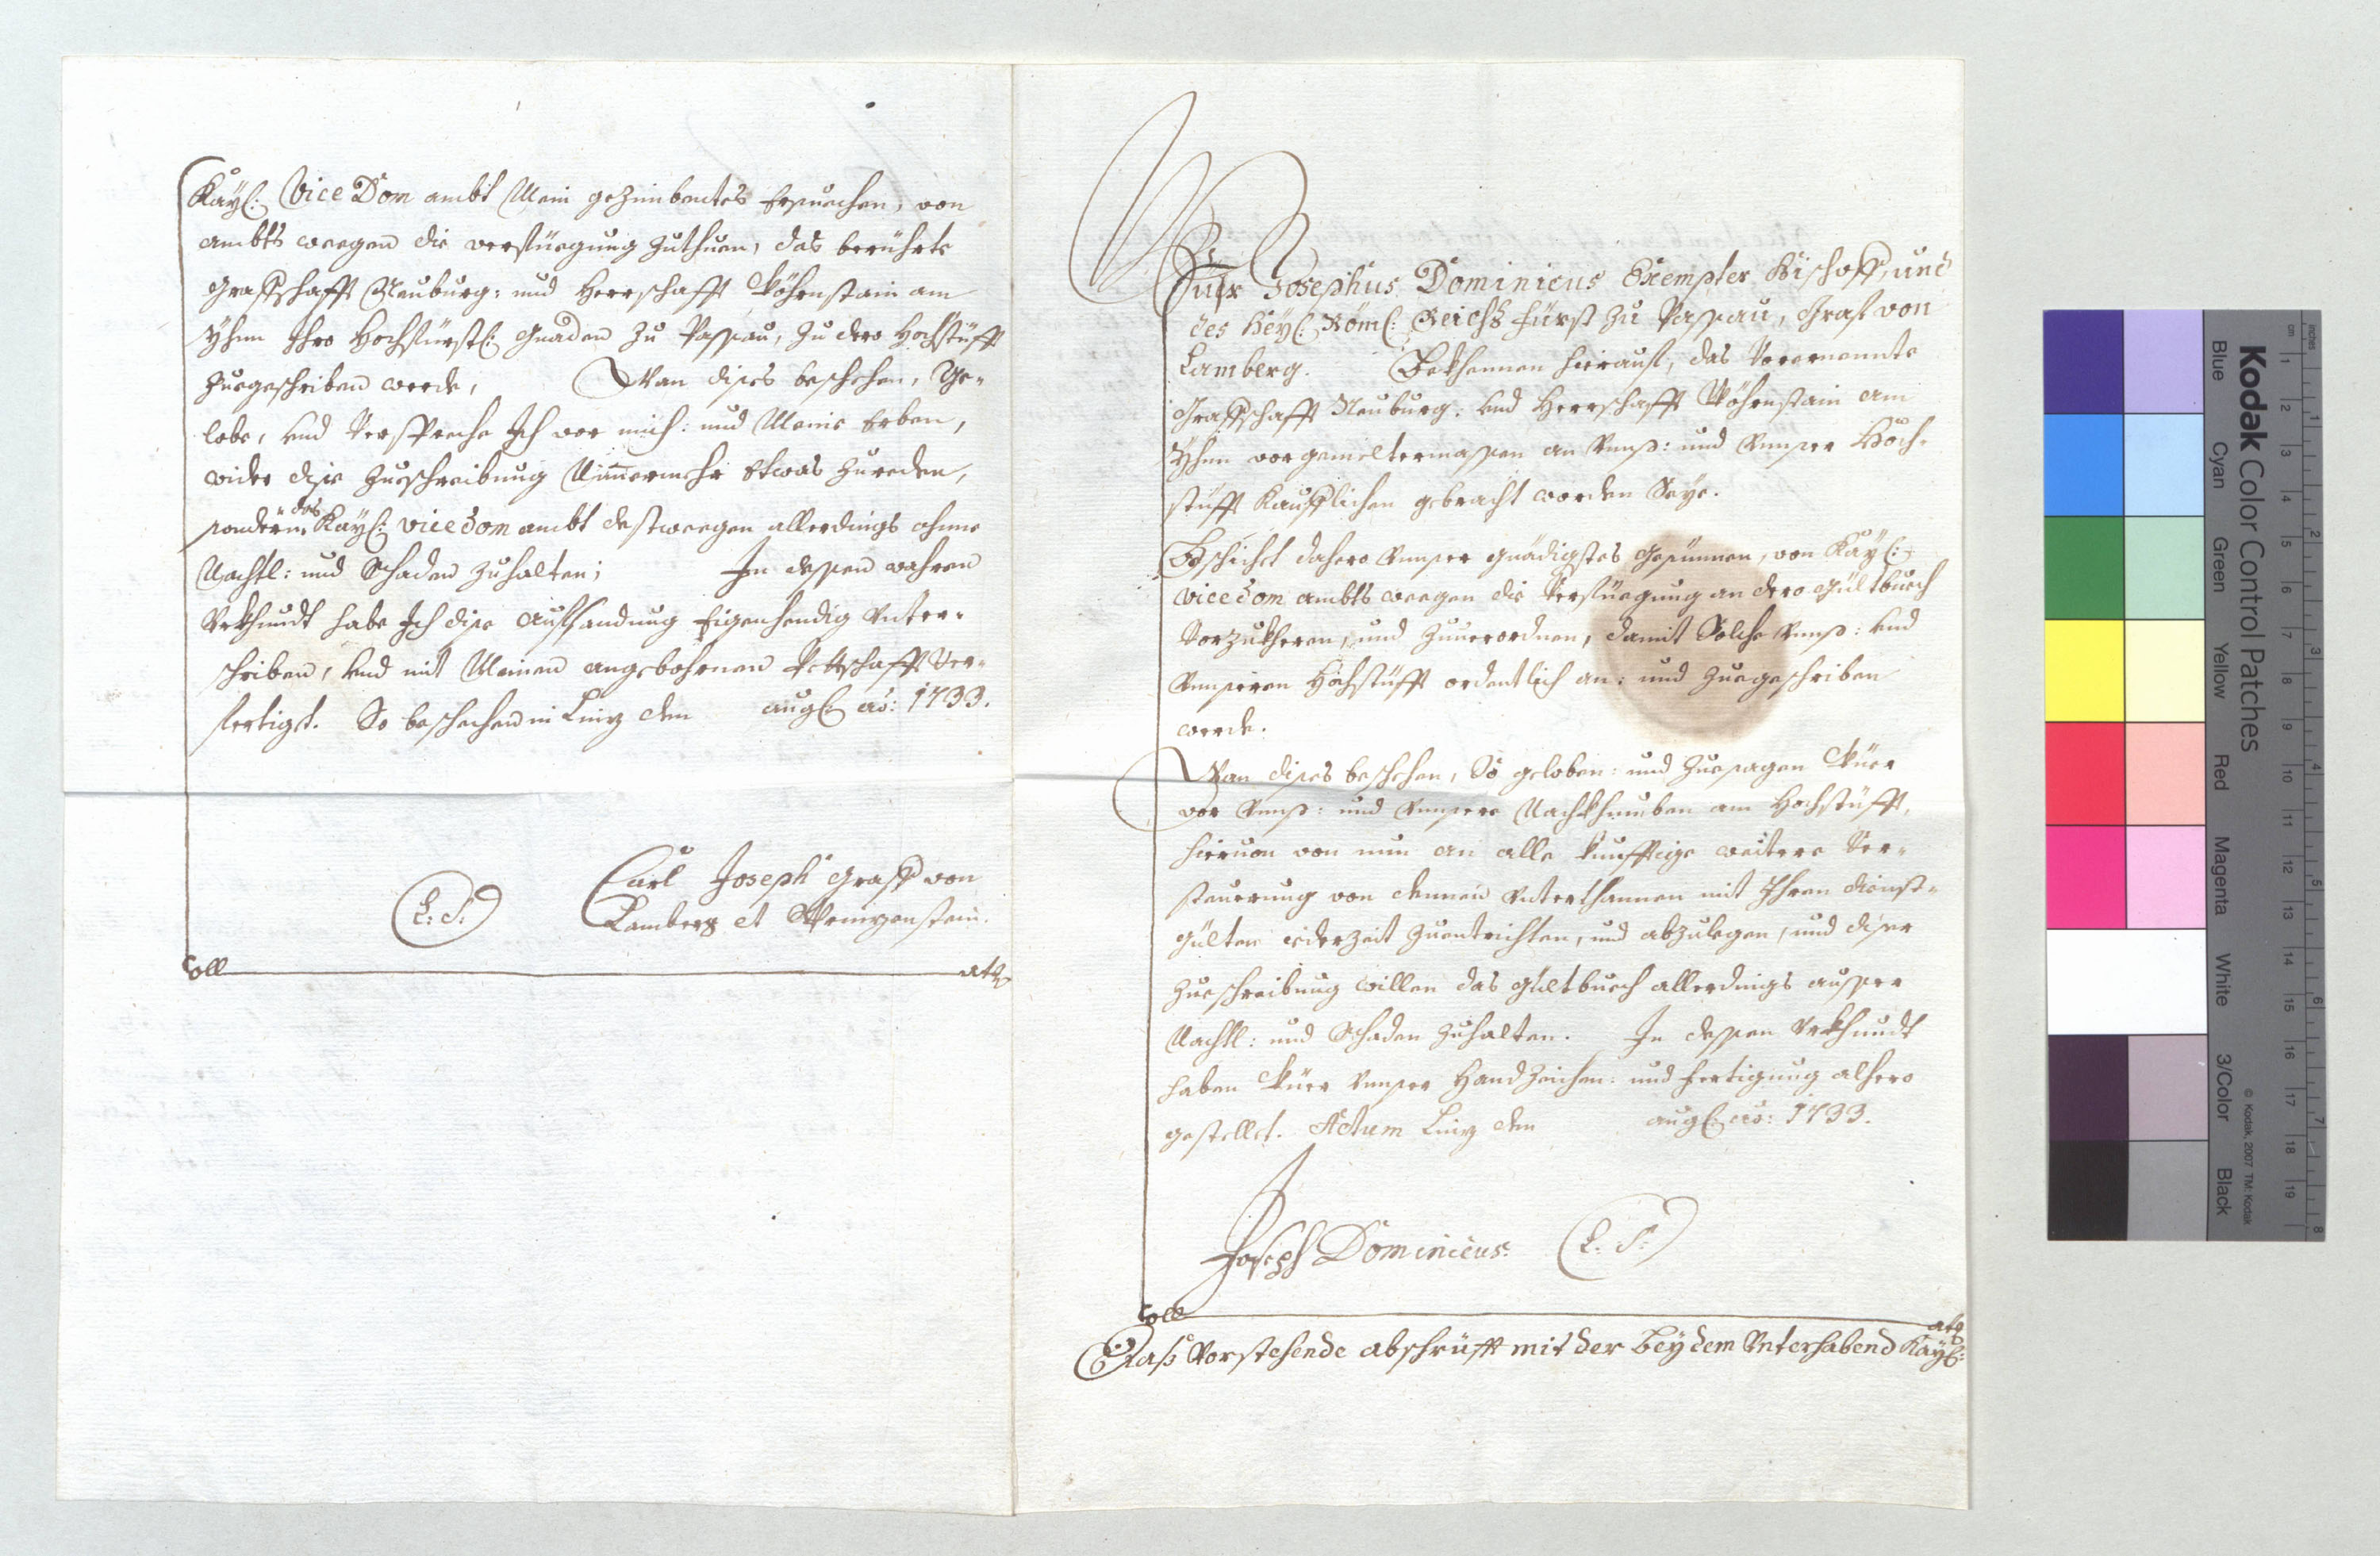 Kayl: Vice Dom ambt Mein gezimbentes Ersuechen, von
ambts weegen die verfüegung zuthuen, das berührte
Graffschafft Neuburg: und Herrschafft Wöhrnstain am
Yhnn Ihro Hochfürstl: Gnaden zu Passau, zu dero Hochstüfft
zuegeschriben werde, Wan dises beschehen, Ge-
lobe, und Verspreche Ich vor mich: und Meine Erben,
wider dise Zueschreibung Nimmermehr Etwas zureden,
sondern das Kayl: vicedom ambt destweegen allerdings ohne
Nachtl: und Schaden zuhalten; In dessen wahren
Urkhundt habe Ich dise Auffsandung Eigenhendig unter-
schriben, und mit Meinen angebohrnen Pettschafft Ver-
fertiget. So beschehen in Linz den augl: ao: 1733.
(L: S:)
Carl Joseph Graff von
Lamberg et Sprinzenstein.
Coll atq
Wür Josephus Dominicus Exempter Bischoff, und
des Heyl: Röml: Reichs Fürst zu Passau, Graf von
Lamberg. Bekhennen hierauf, das Vorernennte
Graffschafft Neuburg: und Herrschafft Wöhrnstain am
Yhnn vorgemeltermassen an Unnß: und Unnser Hoch-
stüfft Kaufflichen gebracht worden Seye.
Geschicht dahero Unnser gnädigstes Gesünnen, von Kayl:
vicedom ambts weegen die Verfüegung an dero Gültbuech
Vorzukheren, und zuverordnen, damit Solche Unnß: und
Unnseren Hochstüfft ordentlich an: und zuegeschriben
werde.
Wan dises beschehen, So geloben: und zuesagen Wüer
vor Unnß: und Unnsere Nachkhomben am Hochstüfft,
hiervon von nun an alle künfftige weitere Ver-
steuerung von denen Unterthannen mit Ihren dienst-
gülten iederzeit zuentrichten, und abzulegen, und diser
Zueschreibung willen das gültbuech allerdings ausser
Nachtl: und Schaden zuhalten. In dessen Urkhundt
haben Wüer Unnser Handzeichen: und Fertigung alhero
gestellet. Actum Linz den augl: ao: 1733.
Joseph Dominicus. (L: S:)
Coll atq
Daß Vorstehende abschrüfft mit der bey dem Unterhabend Kayl:
Kodak Color Control Patches
Blue Cyan Green Yellow Red Magenta White 3/Color Black
© Kodak, 2007 TM: Kodak
cm 1 2 3 4 5 6 7 8 9 10 11 12 13 14 15 16 17 18 19
inches 1 2 3 4 5 6 7 8